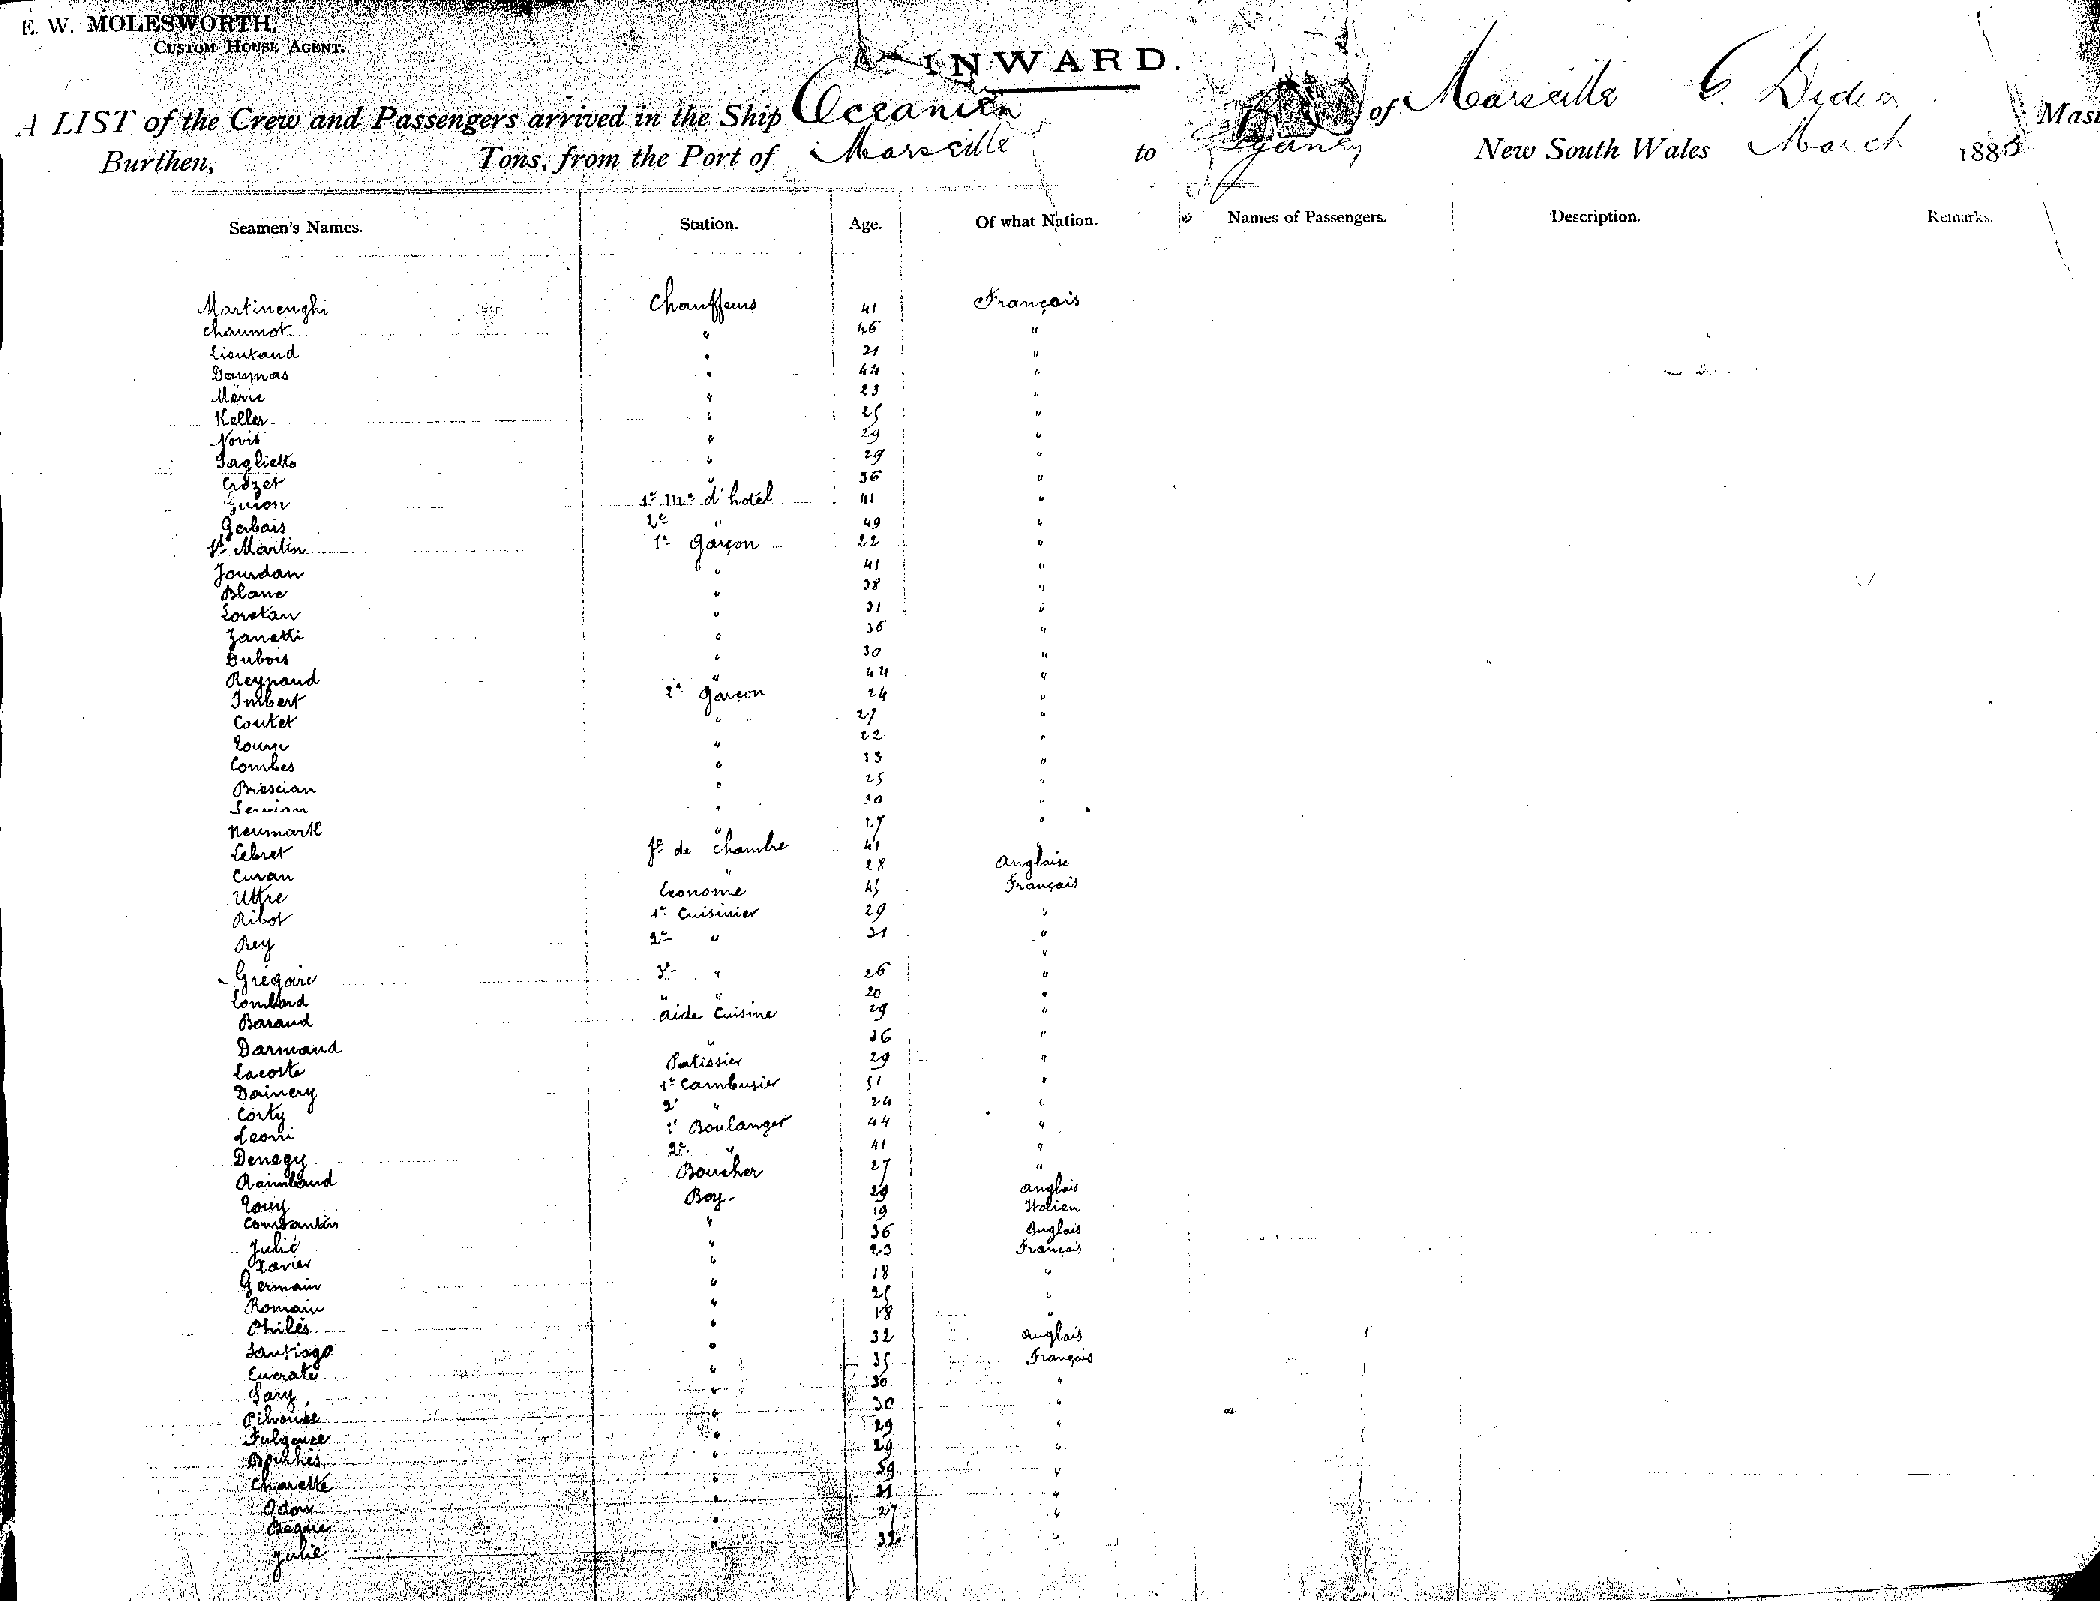 E. W. MOLESWORTH,
CUSTOM HOUSE AGENT.
INWARD.
A LIST of the Crew and Passengers arrived in the Ship Oceanien of Marseille
Burthen, Tons, from the Port of Marseille to Sydney New South Wales March 188
Seamen's Names. Station. Age. Of what Nation. Names of Passengers. Description. Remarks.
Martinenghi Chauffeurs 41 Français
Chaumot " 46 "
Lieutaud " 21 "
Daumas " 44 "
Marie " 23 "
Keller " 25 "
Novis " 29 "
Taglietto " 29 "
Crozet " 36 "
Guion 1er Me d'hotel 41 "
Gerbais 2e " 49 "
St Martin 1e Garçon 22 "
Jourdan " 41 "
Blanc " 38 "
Loretan " 31 "
Zanetti " 36 "
Dubois " 30 "
Reynaud " 44 "
Imbert 2e Garçon 24 "
Coutet " 27 "
" 22 "
Combes " 33 "
Brescian " 25 "
" 30 "
Neumark " 27 "
Lebret fe de chambre 41
Curan " 28 Anglaise
Uttre Econome 45 Français
Ribot 1er Cuisinier 29 "
Rey 2e " 31 "
Grégoire 3e " 26 "
Lombard " " 20 "
Barraud aide Cuisine 29 "
Darmand " 36 "
Lacoste Patissier 29 "
Dainery 1er Cambusier 51 "
Corty 2e " 24 "
Leoni 1r Boulanger 44 "
Denegy 2e " 41 "
Raimbaud Boucher 27 "
Boy 29 Anglais
Constantin " 19 Italien
Julie " 36 Anglais
Xavier " 23 Français
Germain " 18 "
Romain " 25 "
Philès " 18 "
Santiago " 32 Anglais
Eucrate " 35 Français
Sary " 30 "
" 30 "
Fulgence " 29 "
Bourhis " 29 "
Charette " 39 "
" 31 "
" 27 "
Julie " 32 "